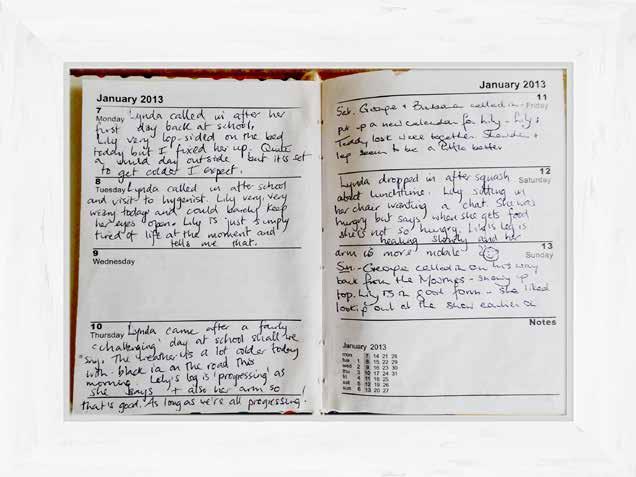 January 2013
7
Monday Lynda called in after her
first day back at school,
Lily very lop-sided on the bed
today but I fixed her up. Quite
a mild day outside but it's set
to get colder I expect.
8
Tuesday Lynda called in after school
and visit to hygenist. Lily very, very
weary today and could barely keep
her eyes open. Lily is just simply
tired of life at the moment and
tells me that.
9
Wednesday
10
Thursday Lynda came after a fairly
'challenging' day at school shall we
say. The weather is a lot colder today
with black ice on the road this
morning. Lily's leg is 'progressing' as
she says + also her arm so
that's good. As long as we're all progressing!
January 2013
11
Friday
George + Barbara called in -
put up a new calendar for Lily - Lily's
Teddy look were together. Shoulder +
leg seem to be a little better
12
Saturday
Lynda dropped in after squash
about lunchtime. Lily sitting in
her chair wanting a chat. She was
hungry but says when she gets food
she's not so hungry. Lily's leg is
healing slowly and her
arm is more mobile.
13
Sunday
Sun - George called in on his way
back from the Mournes - snowy up
top. Lily is in good form - she liked
looking out at the snow earlier on
Notes
January 2013
mon 7 14 21 28
tue 1 8 15 22 29
wed 2 9 16 23 30
thu 3 10 17 24 31
fri 4 11 18 25
sat 5 12 19 26
sun 6 13 20 27